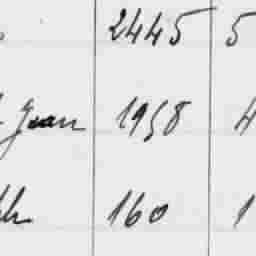 2445 5
Jean 1958 4
160 1